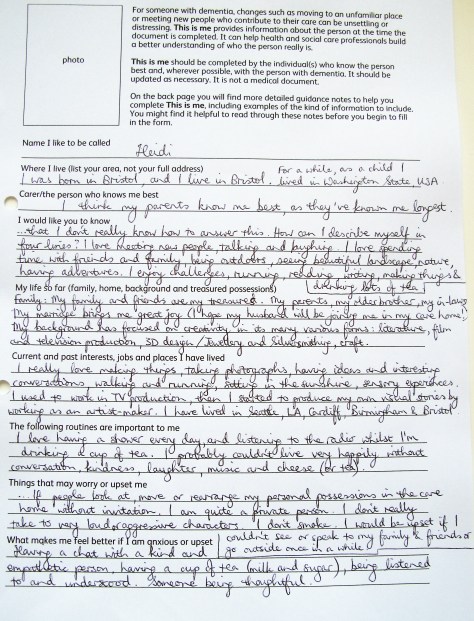 For someone with dementia, changes such as moving to an unfamiliar place
or meeting new people who contribute to their care can be unsettling or
distressing. This is me provides information about the person at the time the
document is completed. It can help health and social care professionals build
a better understanding of who the person really is.
photo
This is me should be completed by the individual(s) who know the person
best and, wherever possible, with the person with dementia. It should be
updated as necessary. It is not a medical document.
On the back page you will find more detailed guidance notes to help you
complete This is me, including examples of the kind of information to include.
You might find it helpful to read through these notes before you begin to fill
in the form.
Name I like to be called
Heidi
Where I live (list your area, not your full address)
For a while, as a child I
I was born in Bristol, and I live in Bristol. lived in Washington State, USA
Carer/the person who knows me best
I think my parents know me best, as they've known me longest.
I would like you to know
...that I don't really know how to answer this. How can I describe myself in
four lines? I love meeting new people, talking and laughing. I love spending
time with friends and family, being outdoors, seeing beautiful landscape, nature,
having adventures. I enjoy challenges, running, reading, writing, making things &
drinking lots of tea
My life so far (family, home, background and treasured possessions)
Family: My family and friends are my treasured. My parents, my older brother, my in-laws
My marriage brings me great joy (I hope my husband will be joining me in my care home!)
My background has focused on creativity in its many various forms: literature, film
and television production, 3D design/Jewellery and Silversmithing, craft.
Current and past interests, jobs and places I have lived
I really love making things, taking photographs, having ideas and interesting
conversations, walking and running, sitting in the sunshine, sensory experiences.
I used to work in TV production, then I started to produce my own visual stories by
working as an artist-maker. I have lived in Seattle, LA, Cardiff, Birmingham & Bristol
The following routines are important to me
I love having a shower every day, and listening to the radio whilst I'm
drinking a cup of tea. I probably couldn't live very happily without
conversation, kindness, laughter, music and cheese (or tea).
Things that may worry or upset me
...If people look at, move or rearrange my personal possessions in the care
home without invitation. I am quite a private person. I don't really
take to very loud or aggressive characters. I don't smoke. I would be upset if I
couldn't see or speak to my family & friends or
go outside once in a while
What makes me feel better if I am anxious or upset
Having a chat with a kind and
empathetic person, having a cup of tea (milk and sugar), being listened
to and understood. Someone being thoughtful.